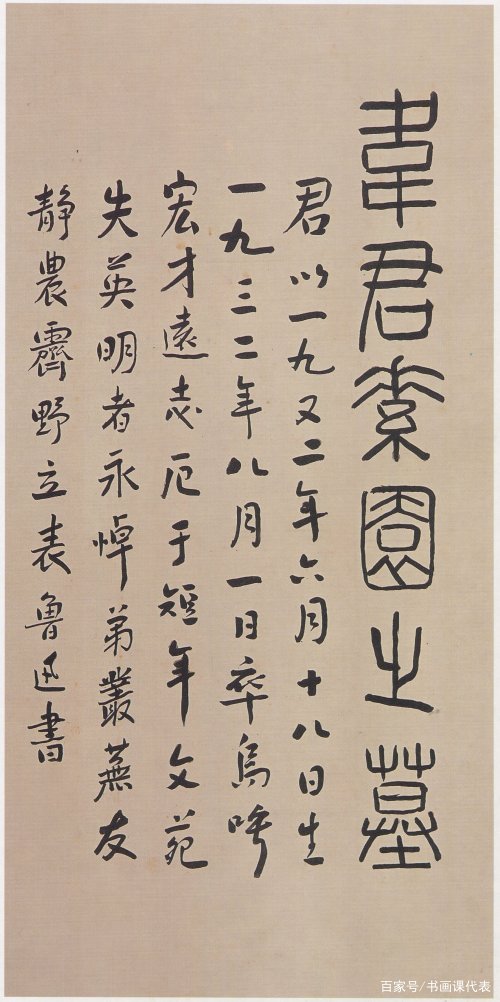 韋君素園之墓
君以一九又二年六月十八日生
一九三二年八月一日卒烏呼
宏才遠志厄于短年文苑
失英明者永悼弟叢蕪友
靜農霽野立表魯迅書
百家号/书画课代表